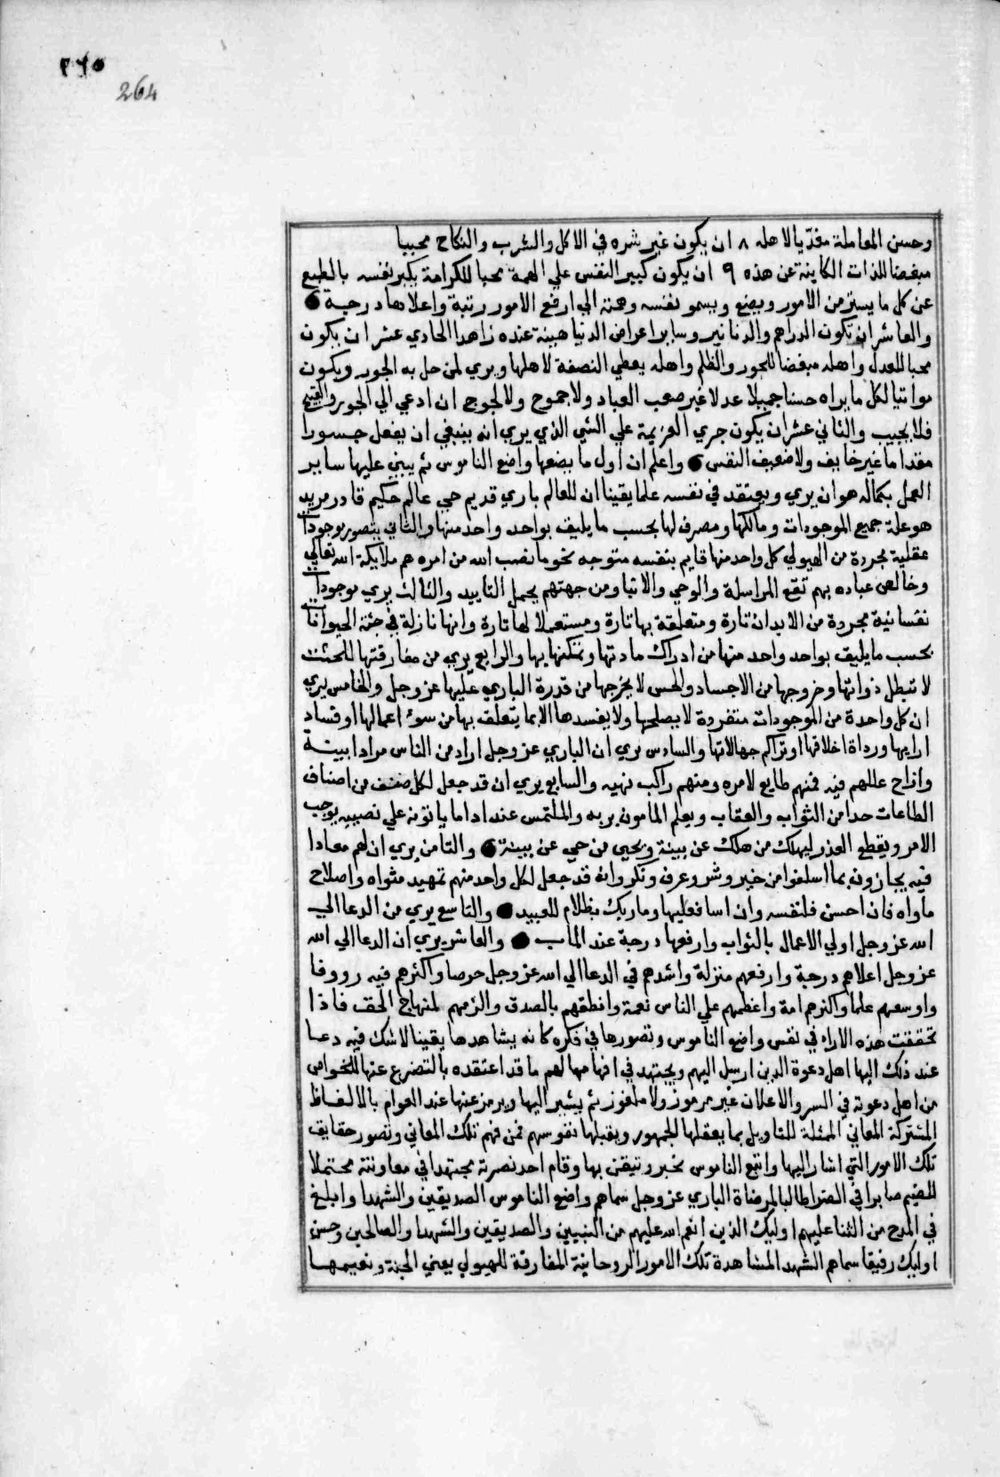 ٢٦٥
264
وحسن المعاملة مؤديا لاهله ٨ ان يكون غير شره في الاكل والشرب والنكاح محببا
مبغضا للذات الكاينة عن هذه ٩ ان يكون كبير النفس علي الهمة محبا للكرامة يكبر نفسه بالطبع
عن كل ما يشين من الامور ويضع ويسمو نفسه وهمته الي ارفع الامور رتبة واعلاها درجة
والعاشر ان تكون الدراهم والدنانير وساير اعراض الدنيا هينة عنده زاهدا الحادي عشر ان يكون
محبا للعدل واهله مبغضا للجور والظلم واهله يعطي النصفة لاهلها ويري لمن حل به الجور ويكون
مواتيا لكل ما يراه حسنا جميلا عدلا غير صعب القياد ولا جموح ولا لجوج ان ادعي الي الجور والقبيح
فلا يجيب والثاني عشر ان يكون جري العزيمة علي الشي الذي يري انه ينبغي ان يفعل جسورا
مقداما غير خايف ولا ضعيف النفس واعلم ان اول ما يضعها واضع الناموس ثم يبني عليها ساير
العمل بكماله هو ان يري ويعتقد في نفسه علما يقينا ان للعالم باري قديم حي عالم حكيم قادر مريد
هو علة جميع الموجودات ومالكها ومصرف لها بحسب ما يليق بواحد واحد منها والثاني يتصور موجودات
عقلية مجردة من الهيولي كل واحد منها قايم بنفسه متوجه نحو ما نصب الله من امره هم ملايكة الله تعالي
وخالص عباده بهم تقع المراسلة والوحي والانبا ومن جهتهم يحمل التاييد والثالث يري موجودات
نفسانية مجردة من الابدان تارة ومتعلقة بها تارة ومستعملا لها تارة وانها نازلة في جثة الحيوانات
بحسب ما يليق بواحد واحد منها من ادراك مادتها وتمكنها بها والرابع يري من مفارقتها للجثث
لا تبطل ذواتها وخروجها من الاجساد والحس لا يخرجها من قدرة الباري عليها عز وجل والخامس يري
ان كل واحدة من الموجودات منفردة لا يصلحها ولا يفسدها الا بما يتعلق بها من سوء اعمالها او فساد
ارايها ورداة اخلاقها او تراكم جهالاتها والسادس يري ان الباري عز وجل اراد من الناس مرادا بينة
وازاح عللهم فيه فمنهم طايع لامره ومنهم راكب نهيه والسابع يري ان قد جعل لكل صنف من اصناف
الطاعات حدا من الثواب والعقاب ويعلم المامون بربه والملتمس عند اداما ياتونه علي نصيبه يوجب
الامر ويقطع العذر ليهلك من هلك عن بينة ويحيي من حي عن بينة والثامن يري ان لهم معادا
فيه يجازون بما اسلفوا من خير وشر وعرف ونكر وانه قد جعل لكل واحد منهم تمهيد مثواه واصلاح
ماواه فان احسن فلنفسه وان اسا فعليها وما ربك بظلام للعبيد والتاسع يري من الدعا الي
الله عز وجل اولي الاعمال بالثواب وارفعها درجة عند الماب والعاشر يري ان الدعا الي الله
عز وجل اعلاهم درجة وارفعهم منزلة واشدهم في الدعا الي الله عز وجل حرصا واكثرهم فيه رووفا
واوسعهم علما واكثرهم امة واعظمهم علي الناس نعمة وانطقهم بالصدق والزمهم لمنهاج الحق فاذا
تحققت هذه الاراء في نفس واضع الناموس وتصورها في فكره كانه يشاهدها يقينا لا شك فيه دعا
عند ذلك اليها اهل دعوة الدين ارسل اليهم ويجتهد في افهامها لهم ما قد اعتقده بالتضرع عنها للخواص
من اهل دعوته في السر والاعلان غير مرموز ولا ملغوز ثم يشير اليها ويرمز عنها عند العوام بالالفاظ
المشتركة المعاني المحتملة للتاويل بما يعقلها الجمهور ويقبلها نفوسهم فمن فهم تلك المعاني وتصور حقايق
تلك الامور التي اشار اليها واتبع الناموس بخبر وتيقن بها وقام احد نصرته مجتهدا في معاونته محتملا
للضيم صابرا في الضرا طالبا لمرضاة الباري عز وجل سماهم واضع الناموس الصديقين والشهدا وابلغ
في المدح من الثنا عليهم اوليك الذين انعم الله عليهم من النبيين والصديقين والشهدا والصالحين وحسن
اوليك رفيقا سماهم الشهدا لمشاهدة تلك الامور الروحانية المفارقة للهيولي يعني الجنة ونعيمها